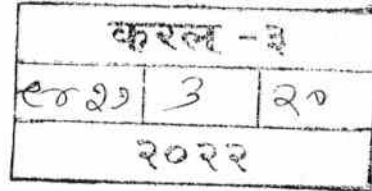 करल - ३
९४२७ ३ २०
२०२२